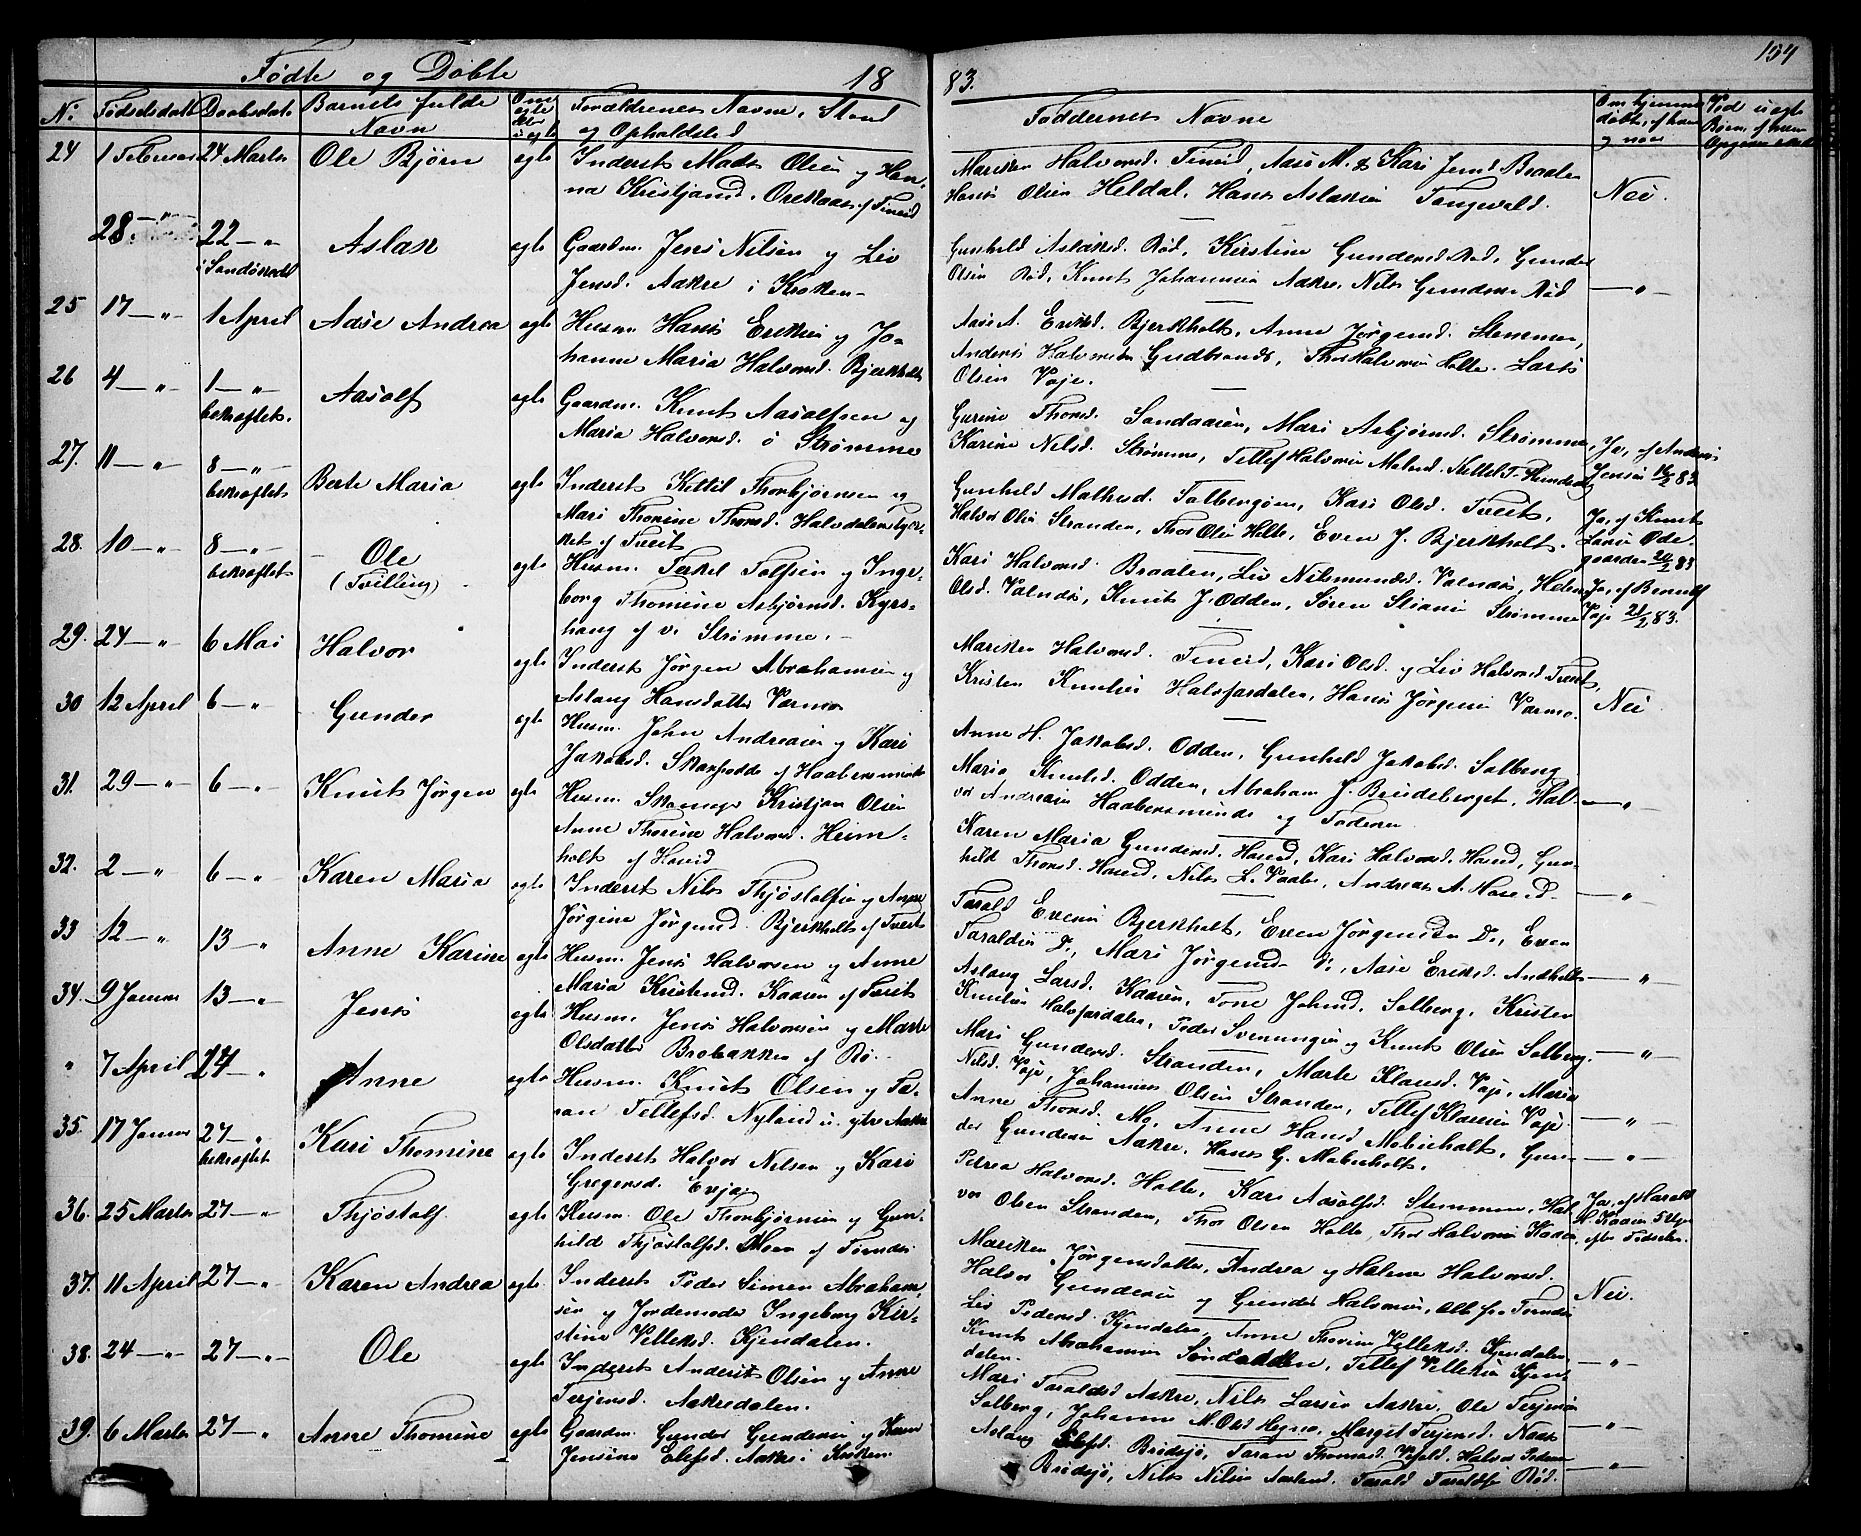 Fødte og Døbte 18 83. 154
No: Fødselsdato Daabsdato Barnets fulde Navn Om egte eller uegte Forældrenes Navne, Stand og Opholdsted Faddernes Navne Om hjemmedøbte, af hvem og naar
24 1 Februar 24 Marts Ole Bjørn egte Inderst Mads Olsen og Han-
na Kristjansd. Orekaas af Fineid
Mariken Halvorsd. Fineid, Aase M. & Kari Jensd Braaten
Hans Olsen Heldal, Hans Aslaksen Tangvald. Nei.
28 —"— 22 —"— i Sandøkedal Aslak egte Gaardm. Jens Nilsen og Liv
Jensd. Aakre i Kroken
Gunhild Aslaksd. Rød, Kirstine Gundersd. Rød, Gunder
Olsen Rød, Knut Johannesen Aakre, Nils Gundersen Rød —"—
25 17 —"— 1 April Aase Andrea egte Husm. Hans Eriksen og Jo-
hanne Maria Halvorsd. Bjerkholt
Aase A. Eriksd. Bjerkholt, Anne Jørgensd. Stemmen,
Anders Halvorsen Gudbrands, Thor Halvorsen Holte. Lars
Olsen Vaje.
26 4 —"— 1 —"— bekræftet. Aasolf egte Gaardm. Knut Aasolfsen og
Maria Halvorsd. ø Strømme
Gurine Thorsd. Sandaasen, Mari Asbjørnsd. Strømme,
Karine Nilsd. Strømme, Tellef Halvorsen
Ja, af Anders
Jensen 83
27. 11 —"— 8 —"— bekræftet Berte Maria egte Inderst Kittil Thorbjørnsen og
Mari Thorine Thorsd. Halvdalen
af Tveit
Gunhild Kari Olsd. Tveit,
Halvor Olsen Stranden, Thor Olsen Holte, Even J. Bjerkholt.
Ja, af Knut
Larsen Øde-
gaarden 24/2 83
28. 10 —"— 8 —"— bekræftet Ole (Tvilling) egte Husm. Terkel Tolfsen og Inge-
borg Thomine Asbjørnsd. Kyrs-
haug af v. Strømme.
Kari Halvorsd. Braaten, Liv
Olsd. Valnæs, Knut J. Odden, Søren Strømme
Ja, af
Vaje 21/2 83.
29. 24 —"— 6 Mai Halvor egte Inderst Jørgen Abrahamsen og
Aslaug Hansdatter Varmo
Mariken Halvorsd. Fineid, Kari Olsd. og Liv Halvorsd Tveit,
Kristen Knutsen Halvfardalen, Hans Jørgensen Varmo. Nei
30 12 April 6 —"— Gunder egte Husm. John Andreasen og Kari
Jakobsd. Skarpodde af Haabesmunde
Anne H. Jakobsd. Odden, Gunhild Jakobsd. Solberg
Maria Knutsd. Odden, Abraham J. Brudeberget, Hal-
vor Andreasen Haabesmunde og Faderen —"—
31. 29 —"— 6 —"— Knut Jørgen egte Husm. Skomager Kristjan Olsen
Anne Thorine Halvorsd. Heim-
holt af Haseid
Karen Maria Gundersd. Haseid, Kari Halvorsd. Haseid, Gun-
hild Thorsd. Haseid, Nils L. Vaabø, Andreas A. Haseid —"—
32. 2 —"— 6 —"— Karen Maria egte Inderst Nils Thjøstolfsen og Anne
Jørgine Jørgensd. Bjerkholt af Tveit
Tarald Evensen Bjerkholt, Even Jørgensen Do., Even
Taraldsen Do., Mari Jørgensd Do., Aase Eriksd. —"—
33 12 —"— 13 —"— Anne Karine egte Husm. Jens Halvorsen og Anne
Maria Kristensd. Kaasen af Tveit
Aslaug Larsd. Kaasen, Tone Johnsd. Solberg, Kristen
Knutsen Halvfardalen, Peder Svenungsen og Knut Olsen Solberg. —"—
34. 9 Januar 13 —"— Jens egte Husm. Jens Halvorsen og Marte
Olsdatter Brobakken af Rø.
Mari Gundersd. Stranden, Marte Klausd. Vaje, Maria
Nilsd. Vaje, Johannes Olsen Stranden, Tellef Klausen Vaje. —"—
" 7 April 24 —"— Anne egte Husm. Knut Olsen og Ta-
ran Tellefsd. Nyland u. ytre Aakre
Anne Thorsd. Mo, Anne Hansd Mobierholt, Gun-
der Gundersen Aakre, Hans G. Mobierholt. —"—
35. 17 Januar 27 —"— bekræftet Kari Thomine egte Inderst Halvor Nilsen og Kari
Gregersd. Evja
Petrea Halvorsd. Holte, Kari Aasolfsd. Stemmen, Hal-
vor Olsen Stranden, Thor Olsen Holte, Thor Halvorsen Kaasen
Ja, af Harald
H. Kaasen 5 Uger
efter Fødselen.
36. 25 Marts 27 —"— Thjøstolf egte Husm. Ole Thorbjørnsen og Gun-
hild Thjøstolfsd. Moen af
Mariken Jørgensdatter, Andrea og Halene Halvorsd.
Halvor Gundersen og Gunder Halvorsen, alle fra Nei.
37. 11 April 27 —"— Karen Andrea egte Inderst Peder Simen Abraham-
sen og Jordemoder Ingeborg Kir-
stine Velleksd. Kjendalen.
Liv Pedersd. Kjendalen, Anne Thorine Velleksd. Kjendalen,
Knut Abrahamsen Sundodden, Tellef Velleksen Kjen-
dalen. —"—
38. 24 —"— 27 —"— Ole egte Inderst Anders Olsen og Anne
Terjensd. Aakredalen.
Mari Taraldsd Aakre, Nils Larsen Aakre, Ole Terjesen
Solberg, Johanne M. Olsd Hegna, Margit Terjensd. —"—
39. 6 Marts 27 —"— Anne Thomine egte Gaardm. Gunder Gundersen og Karen
Jensine Elefsd. Aakre i Kroken
Aslaug Elefsd. Brødsjø, Taran Thomasd. Vefald, Halvor Pedersen
Brødsjø, Nils Nilsen Aasland, Tarald Taraldsen Rød. —"—